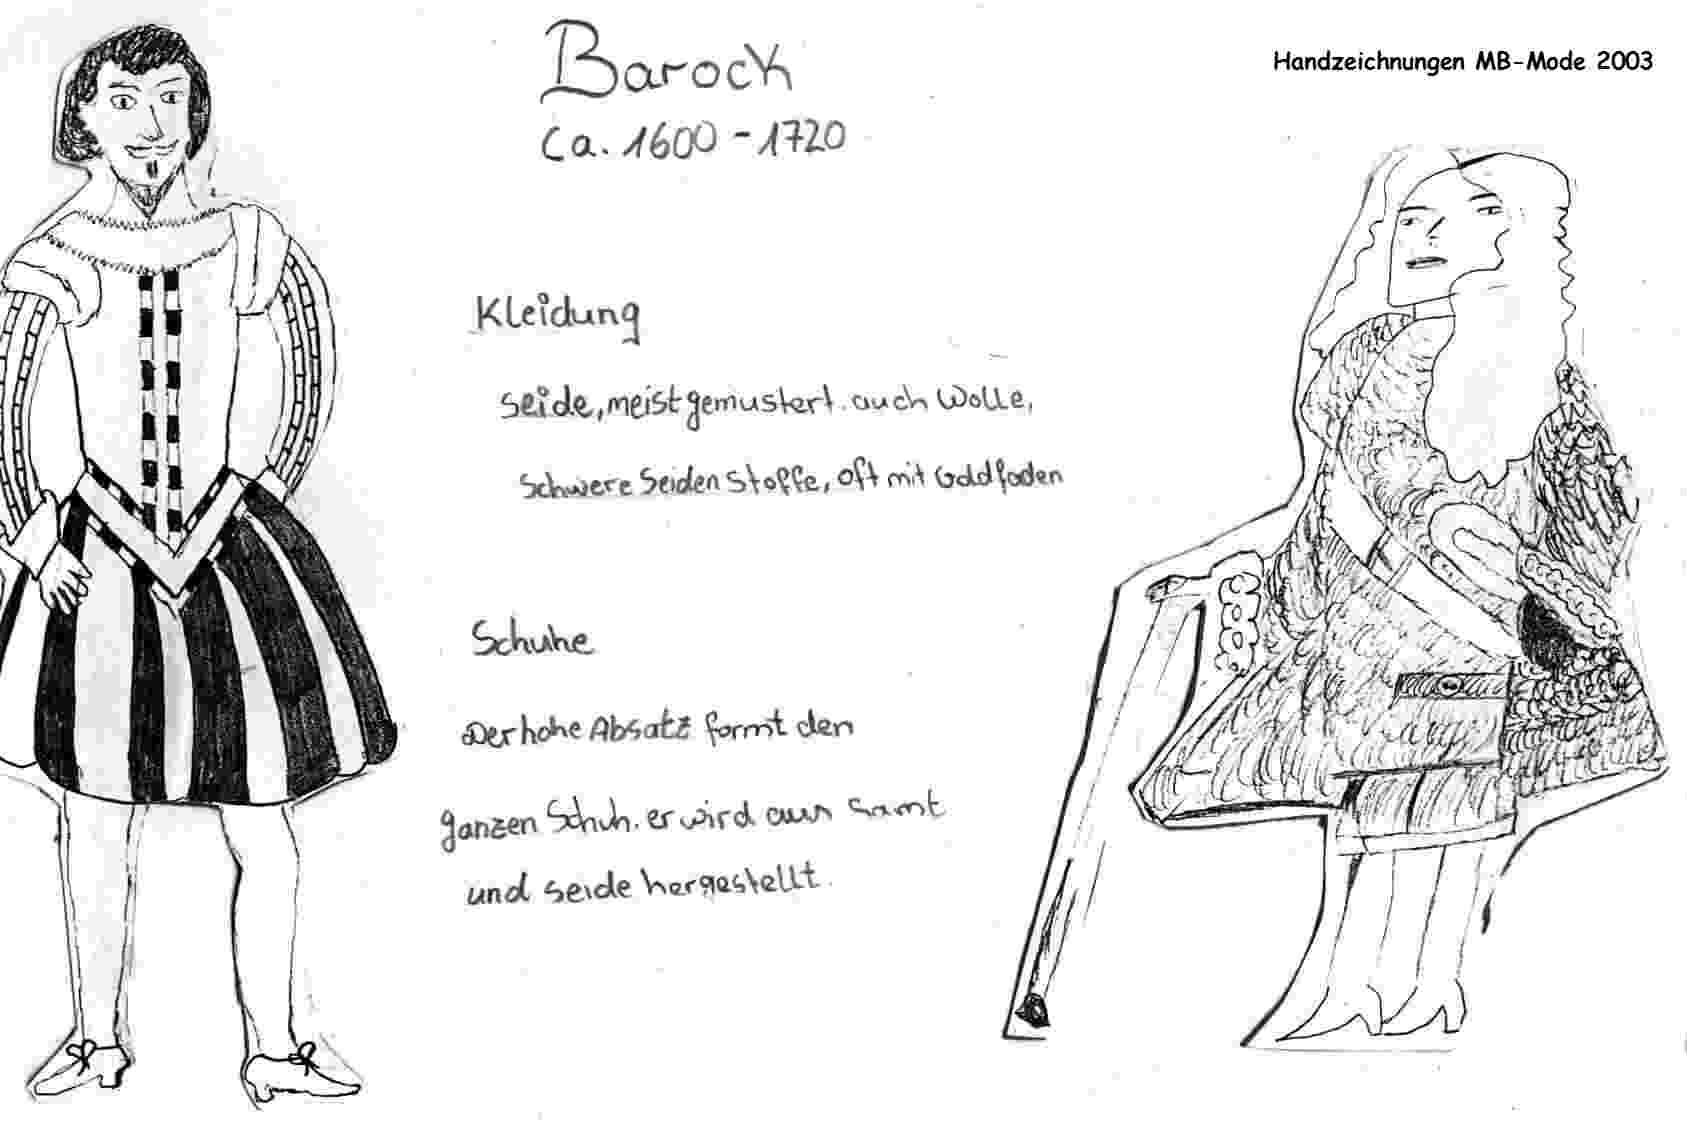 Barock
ca. 1600 - 1720
Handzeichnungen MB-Mode 2003
Kleidung
Seide, meist gemustert. auch Wolle,
Schwere Seiden Stoffe, oft mit Goldfaden
Schuhe
Der hohe Absatz formt den
ganzen Schuh. er wird aus Samt
und Seide hergestellt.